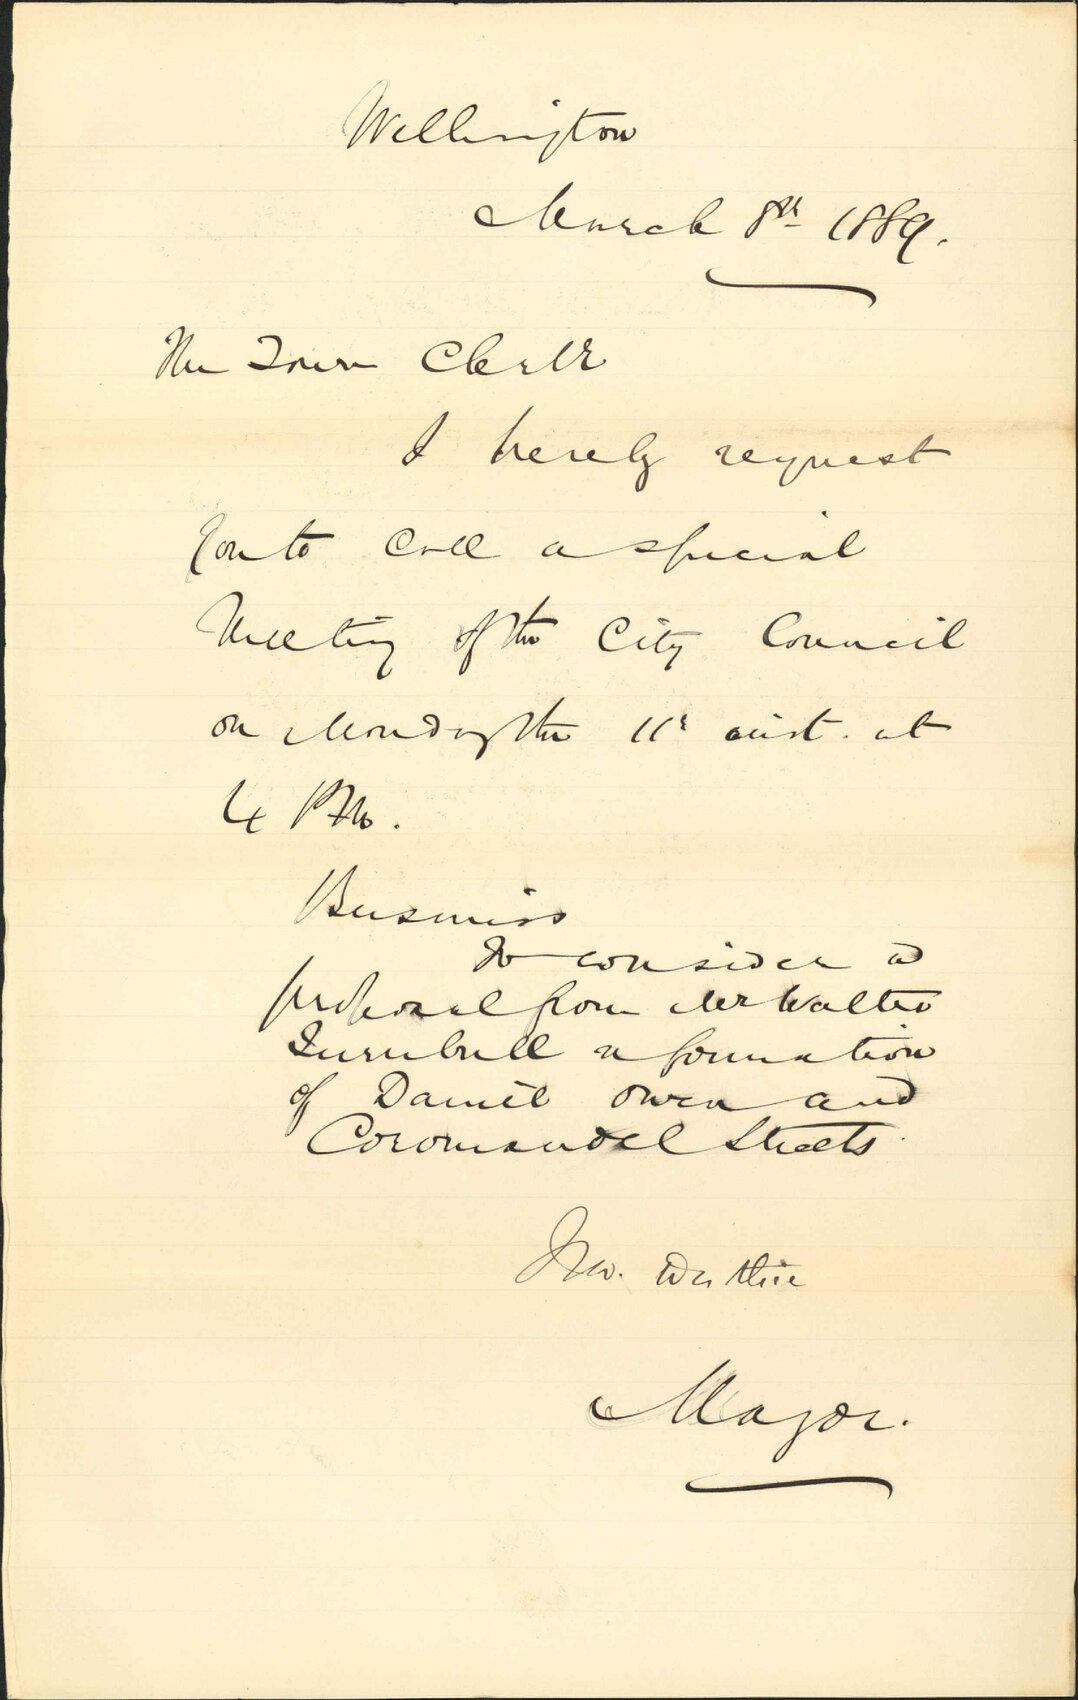 Wellington
March 8th 1889.
The Town Clerk
I hereby request
you to call a special
Meeting of the City Council
on Monday the 11th inst. at
4 PM.
Business
To consider a
proposal from Mr Walter
Turnbull re formation
of Daniel Owen and
Coromandel Streets.
Jno. Duthie
Mayor.